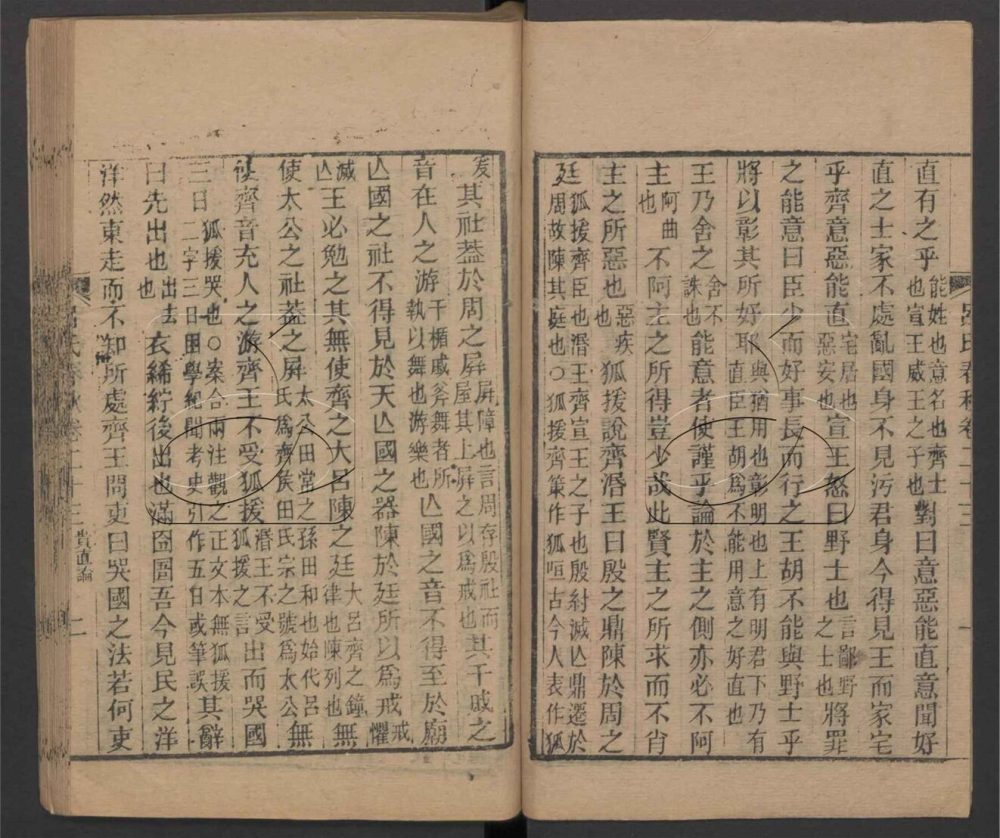 直有之乎能姓也意名也齊士也宣王威王之子也對曰意惡能直意聞好
直之士家不處亂國身不見汚君身今得見王而家宅
乎齊意惡能直宅居也惡安也宣王怒曰野士也言鄙野之士也將罪
之能意曰臣少而好事長而行之王胡不能與野士乎
將以彰其所好耶與猶用也彰明也上有明君下乃有直臣王胡爲不能用意之好直也
王乃舍之舍不誅也能意者使謹乎論於主之側亦必不阿
主阿曲也不阿主之所得豈少哉此賢主之所求而不肖
主之所惡也惡疾也狐援說齊湣王曰殷之鼎陳於周之
廷狐援齊臣也湣王齊宣王之子也殷紂滅亾鼎遷於周故陳其庭也○狐援齊策作狐咺古今人表作狐
爰其社葢於周之屛屛障也言周存殷社而屋其上屛之以爲戒也其干戚之
音在人之游干楯戚斧舞者所執以舞也游樂也亾國之音不得至於廟
亾國之社不得見於天亾國之器陳於廷所以爲戒戒懼
滅亾王必勉之其無使齊之大呂陳之廷大呂齊之鐘律也陳列也無
使太公之社葢之屛太公田常之孫田和也始代呂氏爲齊矦田氏宗之號爲太公無
使齊音充人之游齊王不受狐援湣王不受狐援之言出而哭國
三日狐援哭也○案合兩注觀之正文本無狐援二字三日困學紀聞考史引作五日或筆誤其辭
曰先出也出去也衣絺紵後出也滿囹圄吾今見民之洋
洋然東走而不知所處齊王問吏曰哭國之法若何吏
呂氏春秋卷二十三
一
呂氏春秋卷二十三
貴直論
二